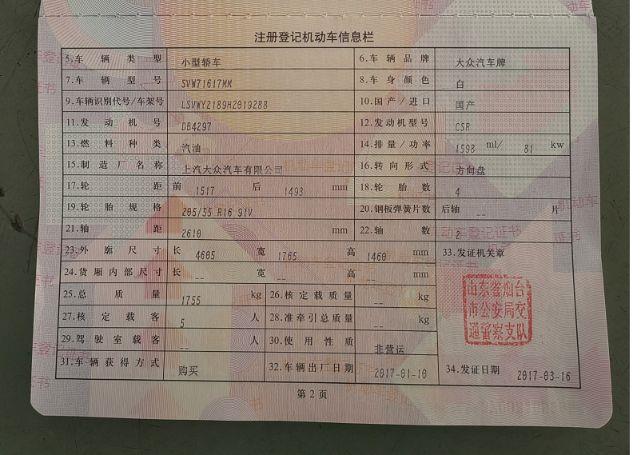 注册登记机动车信息栏
5.车辆类型 小型轿车 6.车辆品牌 大众汽车牌
7.车辆型号 SVW71617MM 8.车身颜色 白
9.车辆识别代号/车架号 LSVWY2189H2019288 10.国产/进口 国产
11.发动机号 DB4297 12.发动机型号 CSR
13.燃料种类 汽油 14.排量/功率 1598 ml/ 81 kw
15.制造厂名称 上汽大众汽车有限公司 16.转向形式 方向盘
17.轮距 前 1517 后 1493 mm 18.轮胎数 4
19.轮胎规格 205/55 R16 91V 20.钢板弹簧片数 后轴 -- 片
21.轴距 2610 mm 22.轴数 2
23.外廓尺寸 长 4605 宽 1765 高 1460 mm 33.发证机关章
24.货厢内部尺寸 长 -- 宽 -- 高 -- mm
25.总质量 1755 kg 26.核定载质量 -- kg
27.核定载客 5 人 28.准牵引总质量 -- kg
29.驾驶室载客 -- 人 30.使用性质 非营运
31.车辆获得方式 购买 32.车辆出厂日期 2017-01-10 34.发证日期 2017-03-16
山东省烟台
市公安局交
通警察支队
第2页